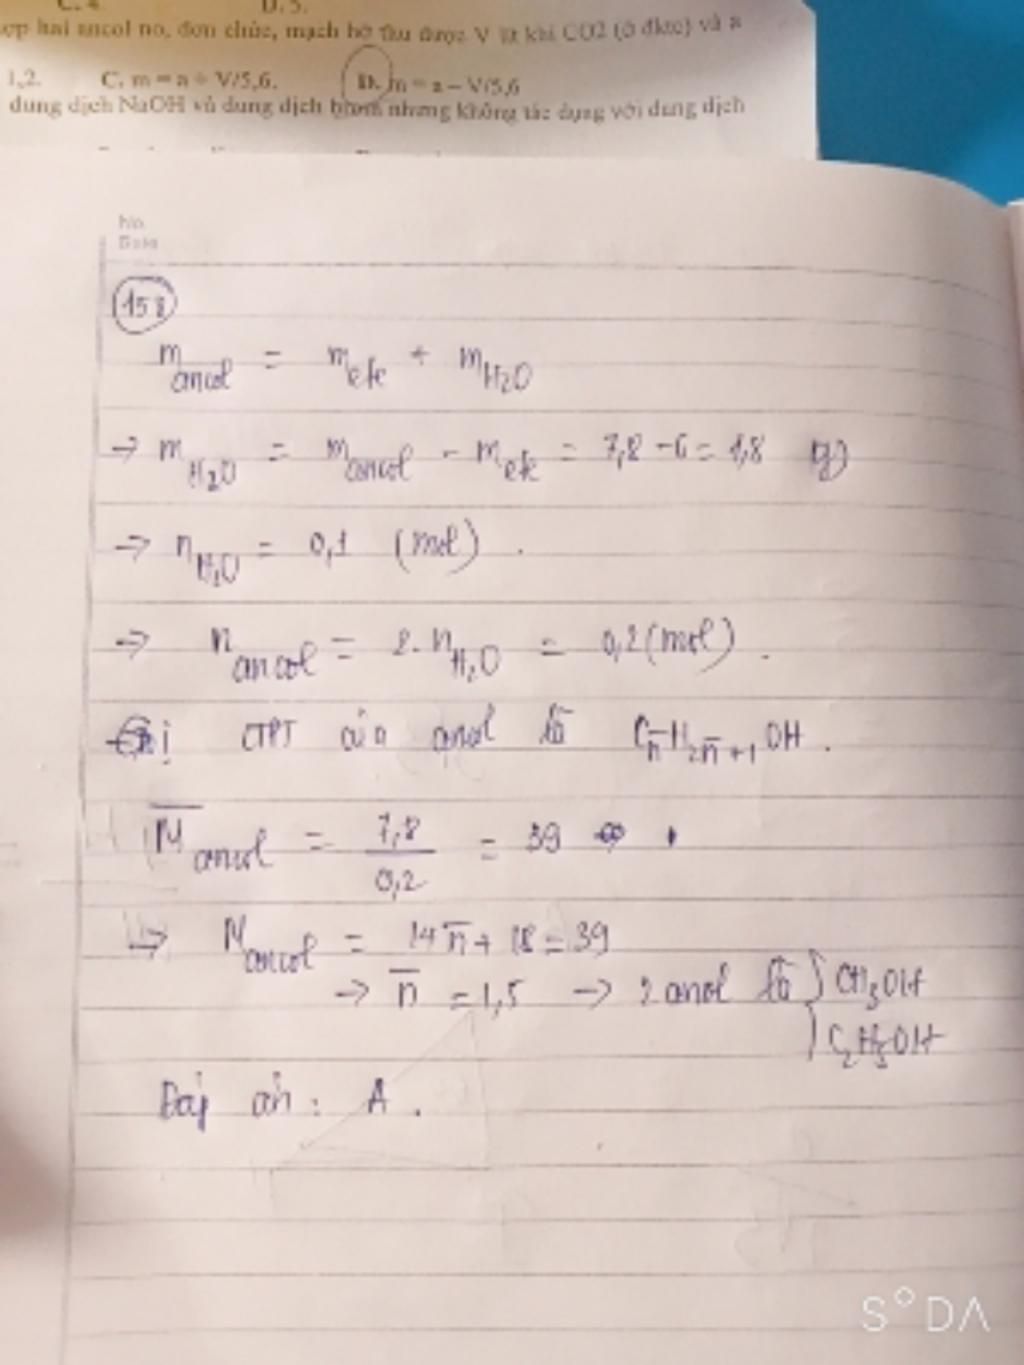 C. 4. D. 5.
ợp hai ancol no, đơn chức, mạch hở thu được V lít khí CO2 (ở đktc) và a
1,2. C. m = a + V/5,6. D. m = a – V/5,6
dung dịch NaOH và dung dịch brom nhưng không tác dụng với dung dịch
No.
Date
158
m ancol = m ete + m H2O
→ m H2O = m ancol - m ete = 7,8 - 6 = 1,8 (g)
→ n H2O = 0,1 (mol).
→ n ancol = 2. n H2O = 0,2 (mol).
Gọi CTPT của ancol là Cn̄H2n̄+1OH.
M̄ ancol = 7,8/0,2 = 39
→ M ancol = 14n̄ + 18 = 39
→ n̄ = 1,5 → 2 ancol là } CH3OH
C2H5OH
Đáp án: A.
SODA